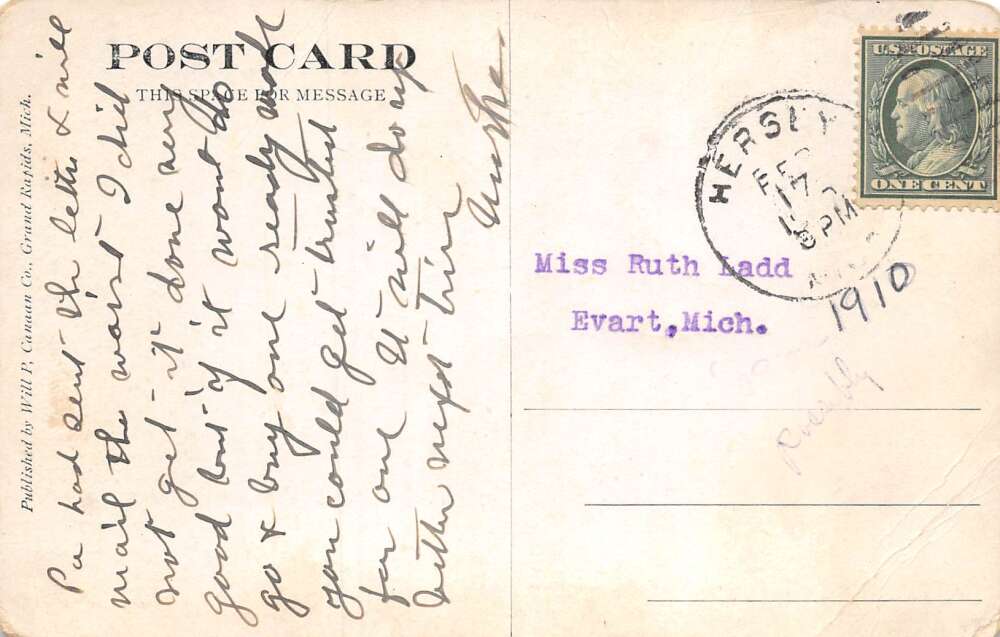 POST CARD
THIS SPACE FOR MESSAGE
Published by Will P. Canaan Co., Grand Rapids, Mich.
Pa had sent the letter & will
mail the waist I did
not get it done very
good but if it wont do
go & buy one ready made
you could get trusted
for one It will do up
better next time
U.S. POSTAGE
ONE CENT
HERSEY
FEB
17
8 PM
MICH
Miss Ruth Ladd
Evart, Mich.
1910